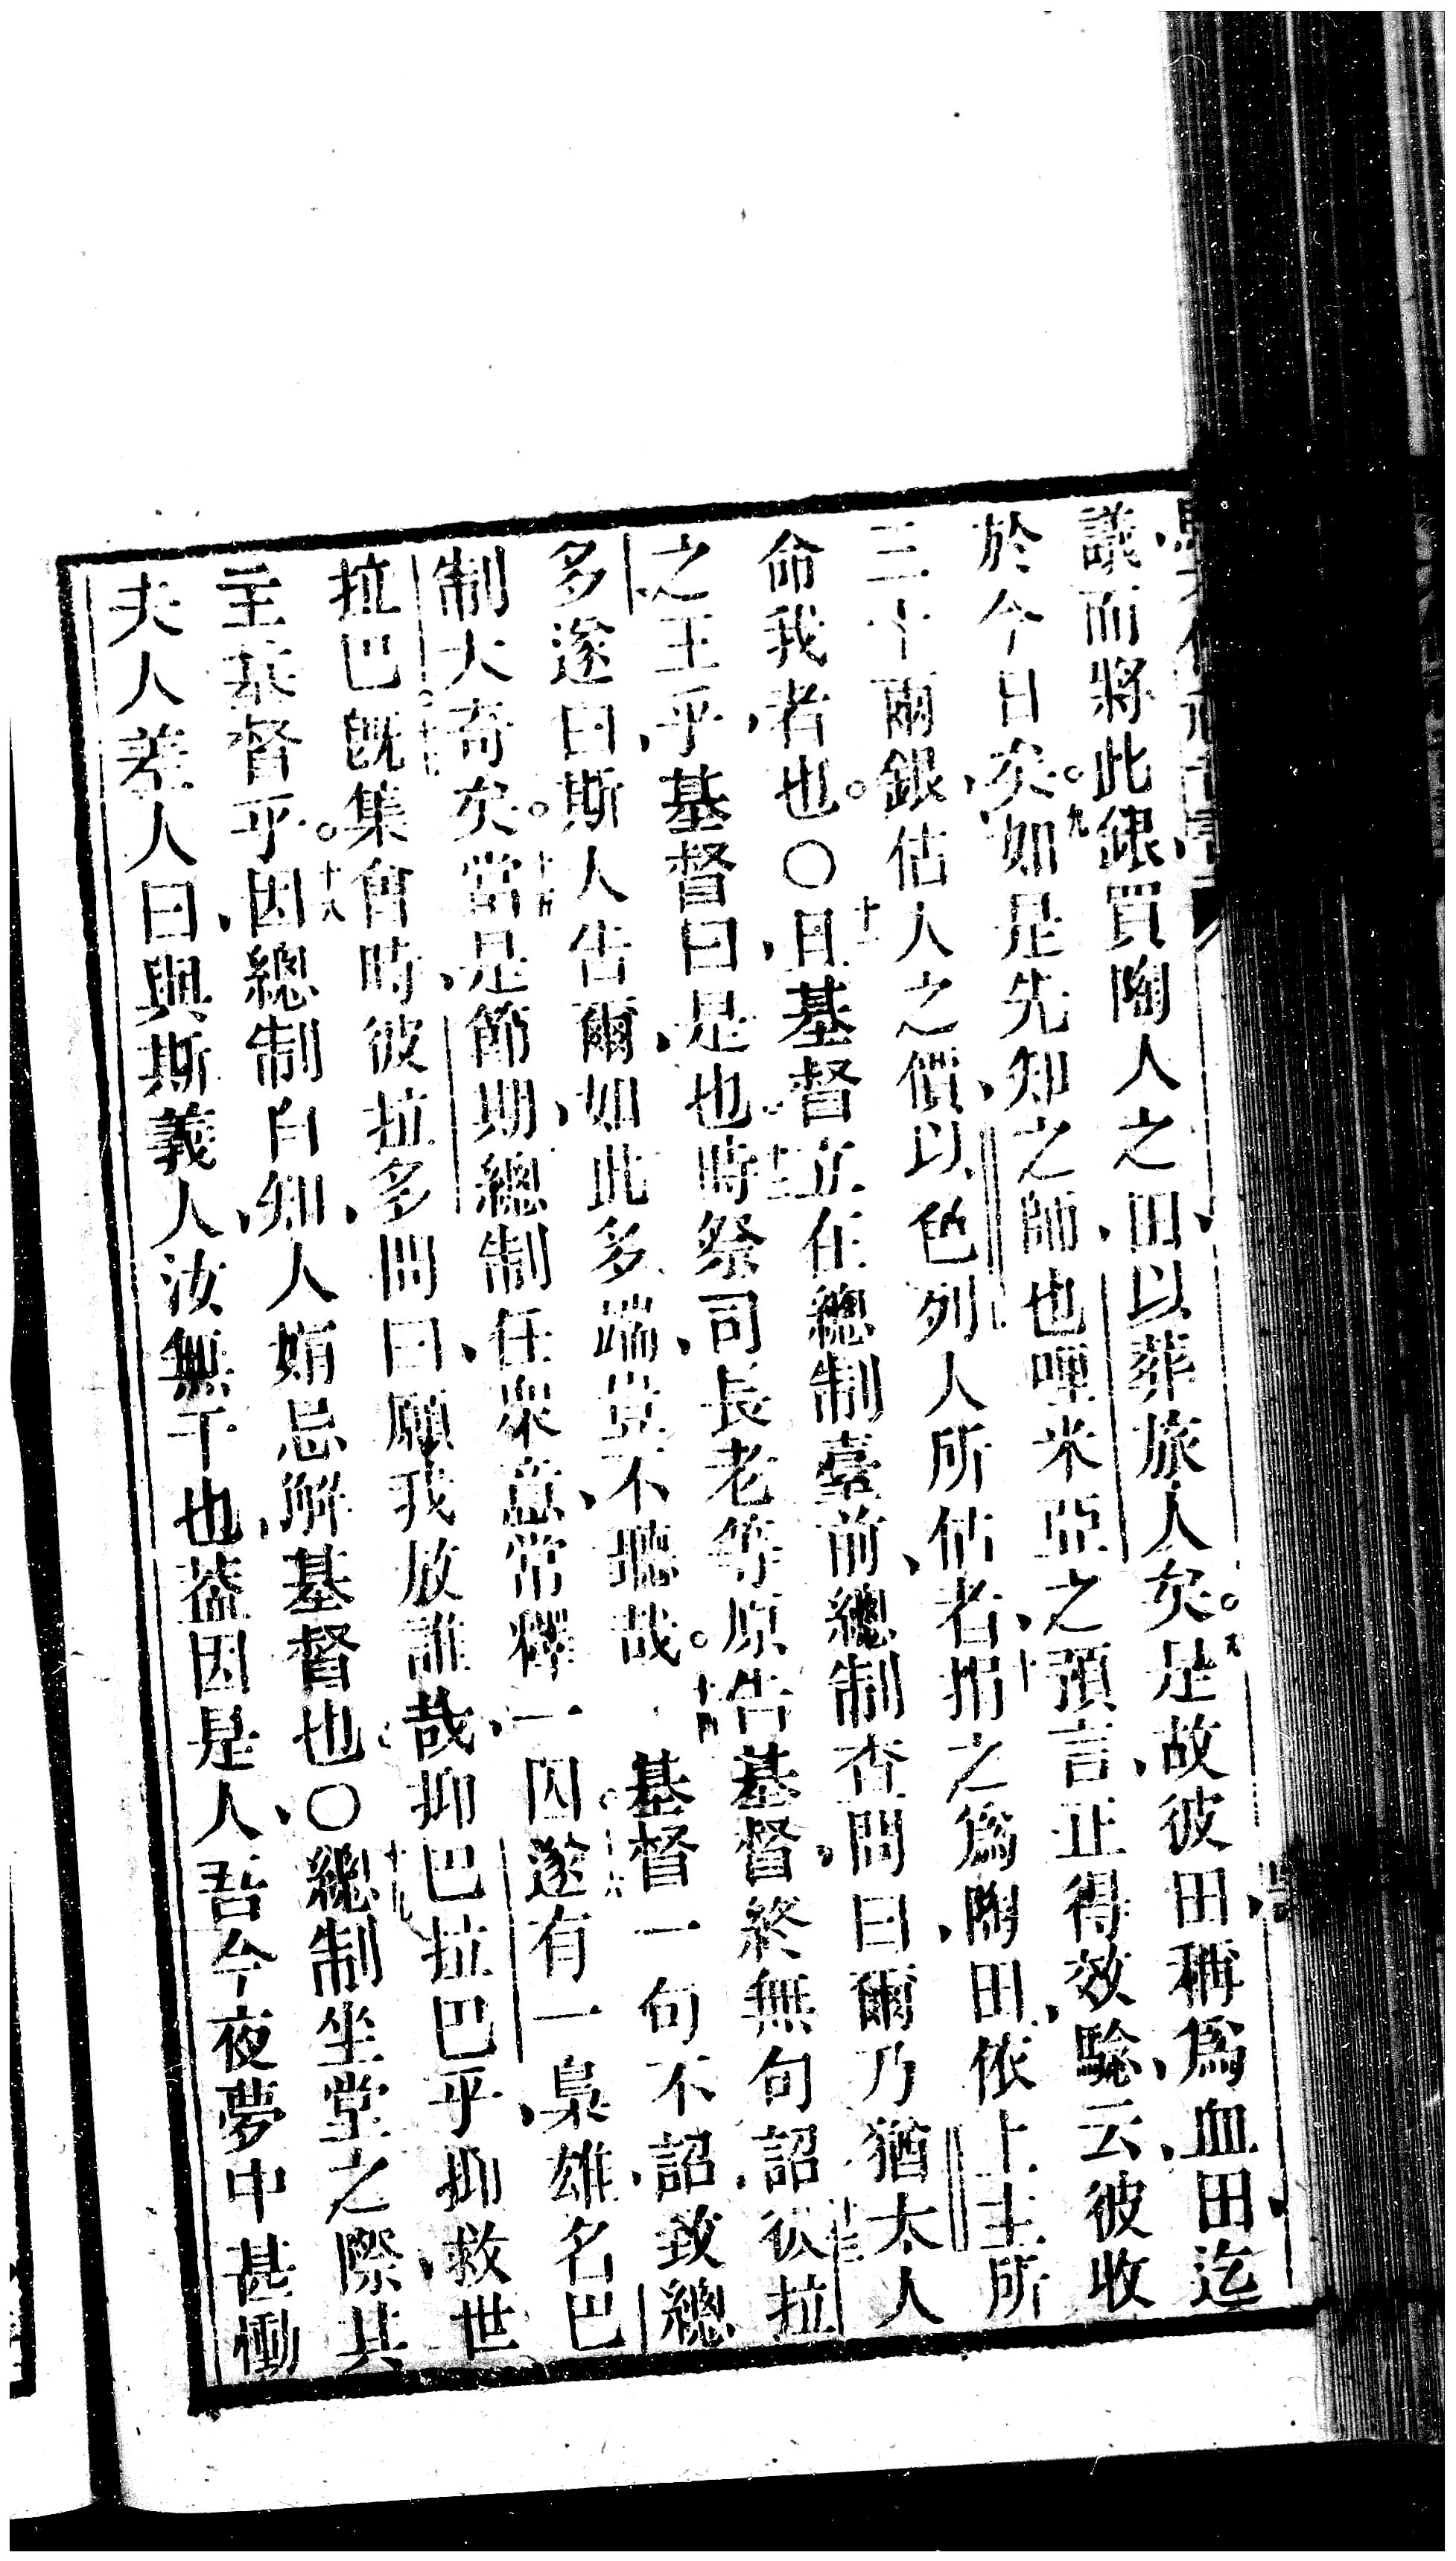 議而將此銀買陶人之田以葬旅人矣。八是故彼田稱爲血田迄
於今日矣。九如是先知之師也哩米亞之預言正得效驗云彼收
三十兩銀估人之價以色列人所估者十捐之爲陶田依上主所
命我者也。〇十一且基督立在總制臺前總制查問曰爾乃猶太人
之王乎基督曰是也十二時祭司長老等原告基督終無句詔十三彼拉
多遂曰斯人告爾如此多端豈不聽哉。十四基督一句不詔致總
制大奇矣。十五當是節期總制任衆意常釋一囚。十六遂有一梟雄名巴
拉巴。十七既集會時彼拉多問曰願我放誰哉抑巴拉巴乎抑救世
主基督乎。十八因總制自知人娟忌解基督也〇十九總制坐堂之際其
夫人差人曰與斯義人汝無干也葢因是人吾今夜夢中甚慟